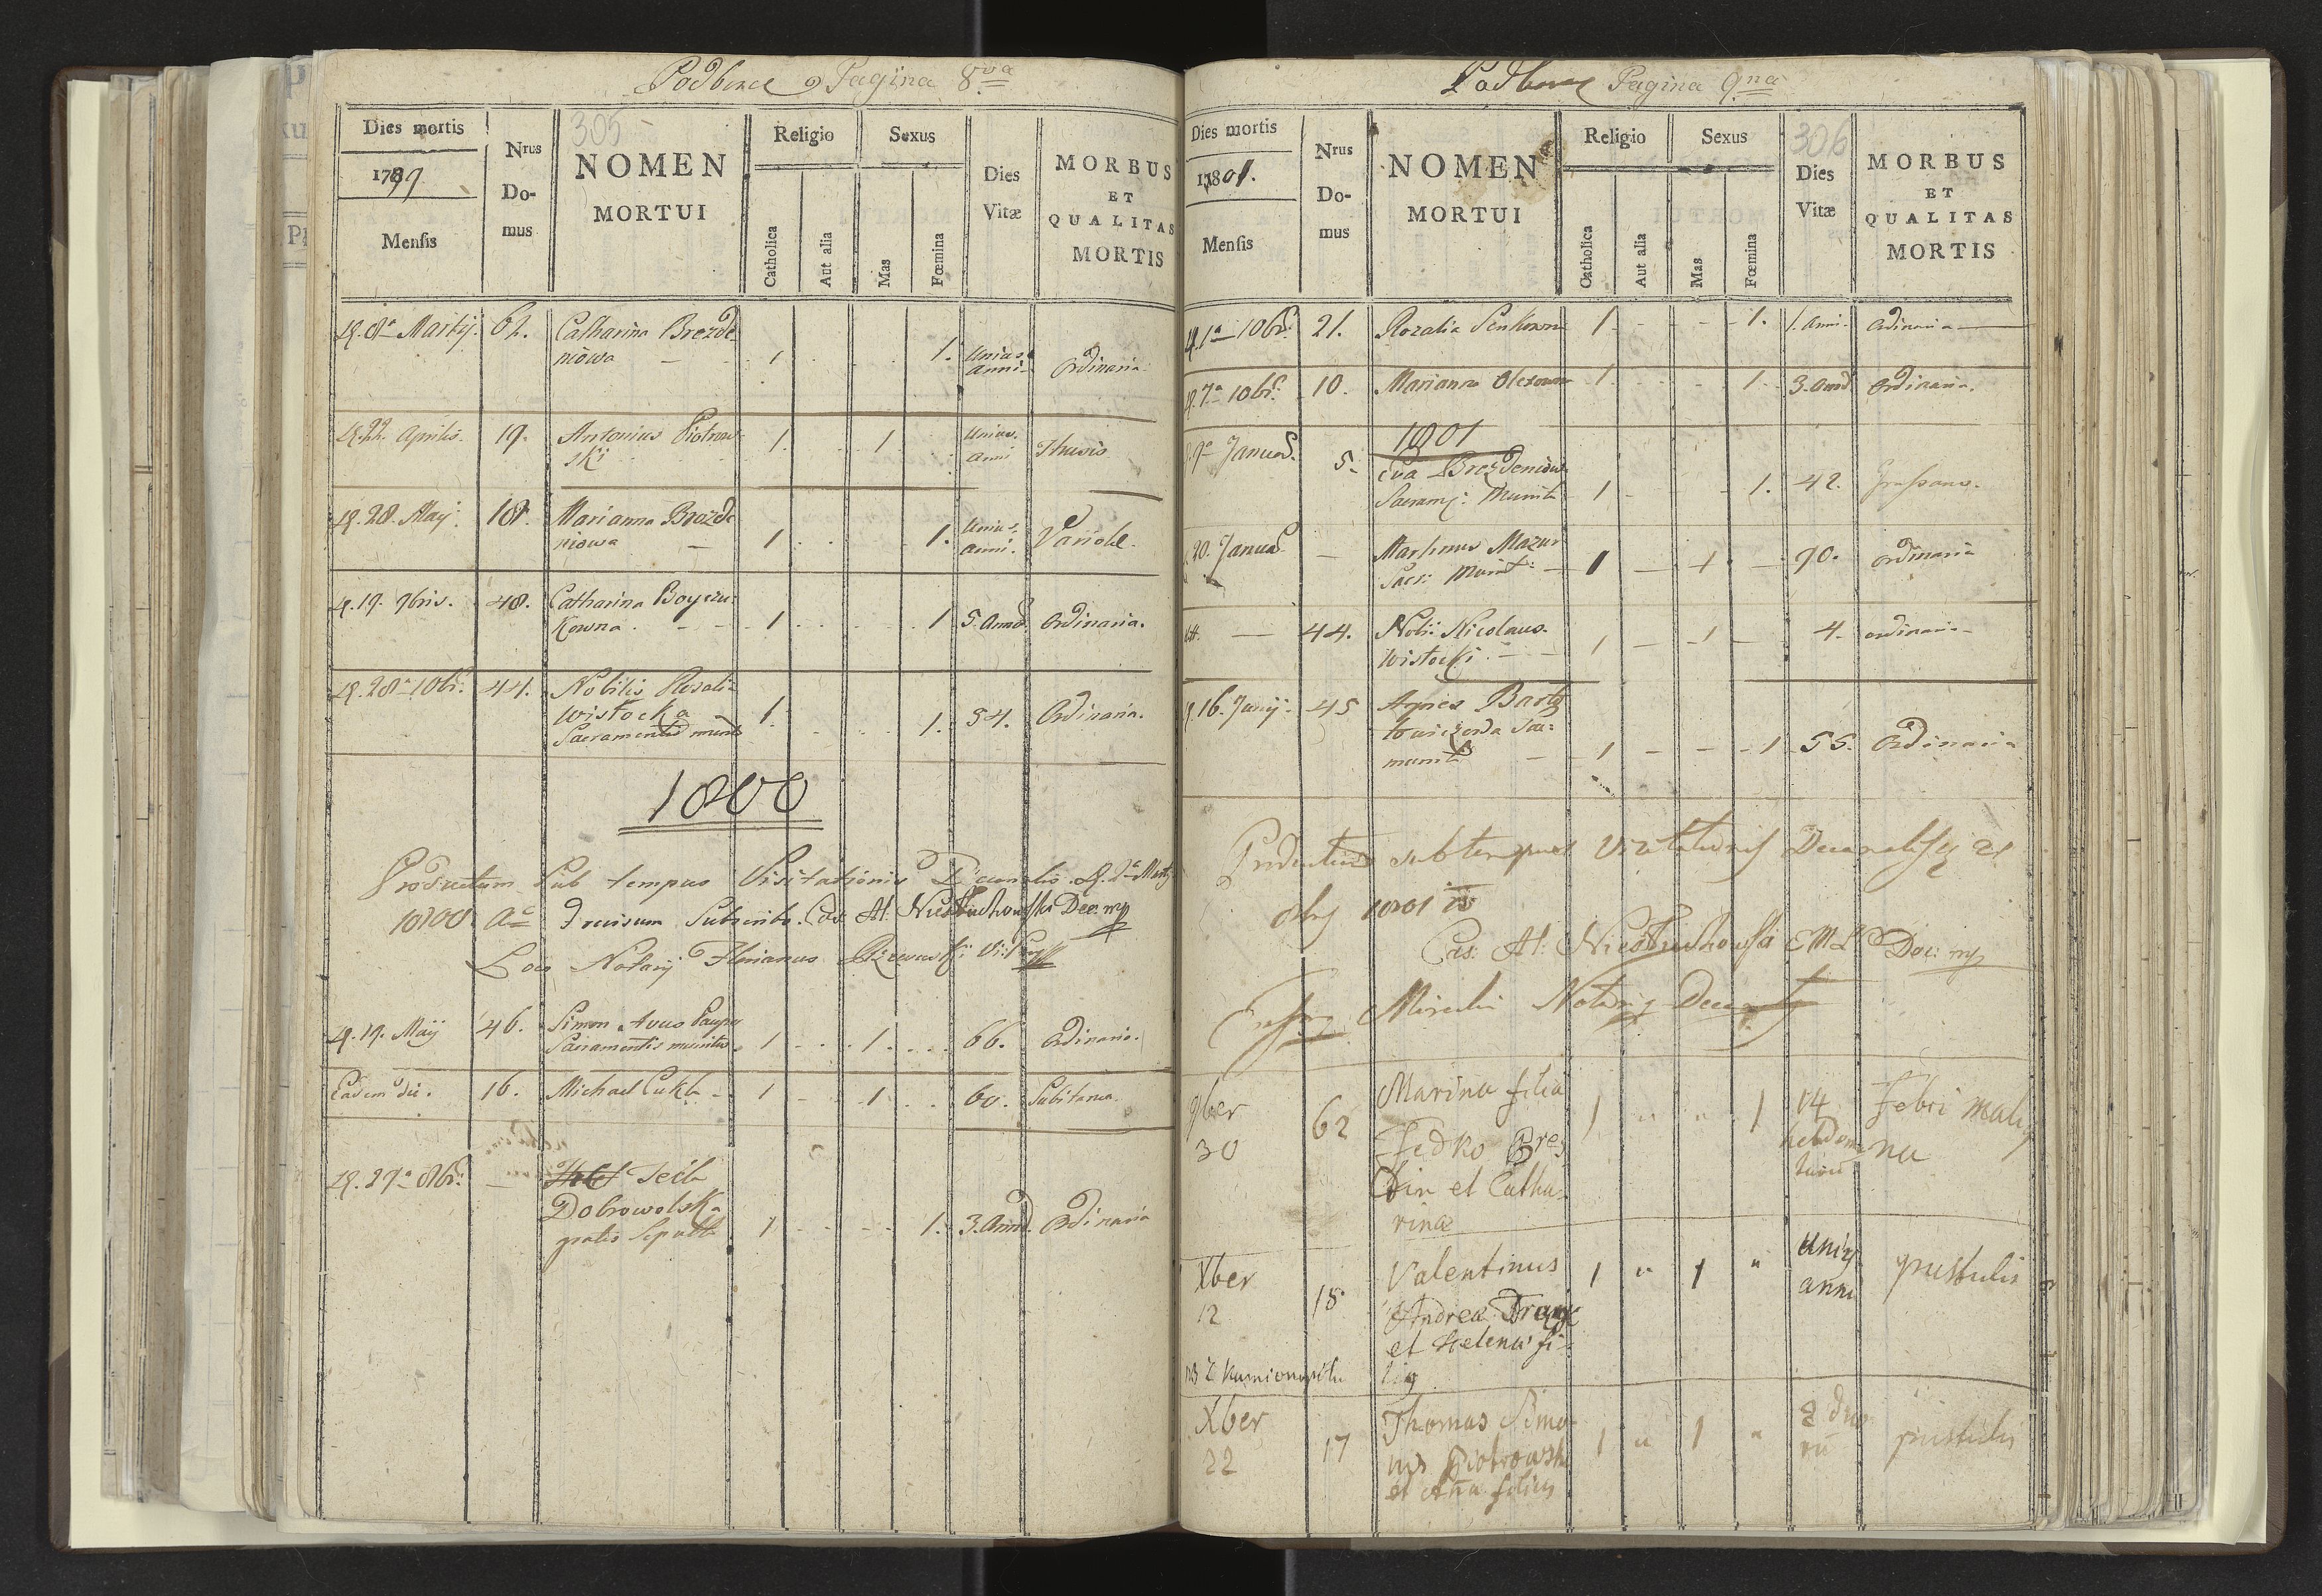 Podborce Pagina 8va
305
Dies mortis
1799
Mensis
Nrus
Do-
mus
NOMEN
MORTUI
Religio
Catholica
Aut alia
Sexus
Mas
Fœmina
Dies
Vitæ
MORBUS
ET
QUALITAS
MORTIS
D. 8a Martij. 62. Catharina Brezde
niowa 1 1. Unius
anni Ordinaria
D. 22. Aprilis. 19. Antonius Piotrow-
ski 1. 1 Unius
anni Thusis
D. 28. Maij. 18. Marianna Brozde
niowa 1 1. Unius
anni. Variolæ
D. 19. 9bris. 48. Catharina Boyczu-
kowna 1 1 5. Annor. Ordinaria.
D. 28a 10br. 44. Nobilis Rosalia
Wistocka
Sacramentis munit 1. 1. 54. Ordinaria.
1800
Productum Sub tempus Visitationis Decanalis D. 2a Martij
1800 Ac Subscribo. Cas. At. Dec. mp
Loco Notarij Florianus
D. 19. Maij 46. Simon Avus Pauper
Sacramentis munitus 1 1 66. Ordinaria.
Eadem die. 16. Michael 1 1 60. Subitanea.
D. 27a 8br. Tecla
Dobrowolska
gratis Sepulta 1 1. 3. Annor. Ordinaria
Podborce Pagina 9na
306
Dies mortis
1801.
Mensis
Nrus
Do-
mus
NOMEN
MORTUI
Religio
Catholica
Aut alia
Sexus
Mas
Fœmina
Dies
Vitæ
MORBUS
ET
QUALITAS
MORTIS
D. 1a 10br. 21. Rozalia Senkowna 1 1. 1. Anni. Ordinaria
D. 7a 10br. 10. Marianna Olexowna 1 1 3. Annor. Ordinaria.
1801
D. 9a Januar. 5. Eva Brezdeniow
Sacram: Munita 1 1. 42.
20. Januar. Martinus Mazur
Sacr: Munit: 1 1 90. Ordinaria
44. Nob: Nicolaus
Wistocki 1 1 4. Ordinaria
D. 16. Junij. 45 Agnes Bart
towiczowa Sac:
munita 1 1 55. Ordinaria
Productum sub tempus Visitationis Decanalis
1801
Cas: At: Dec: mp
Notarij
9ber
30 62 Marina filia
Fedko Brez
din et Catha-
rina 1 " " 1 14 Febri malig
na
Xber
12 18 Valentinus
Andrea
et Helena fi-
lig 1 " 1 " Unig
anni pustulis
Xber
22 17 Thomas Simo-
nis Piotrowski
et Anna filius 1 " 1 " 2 duo
rū pustulis